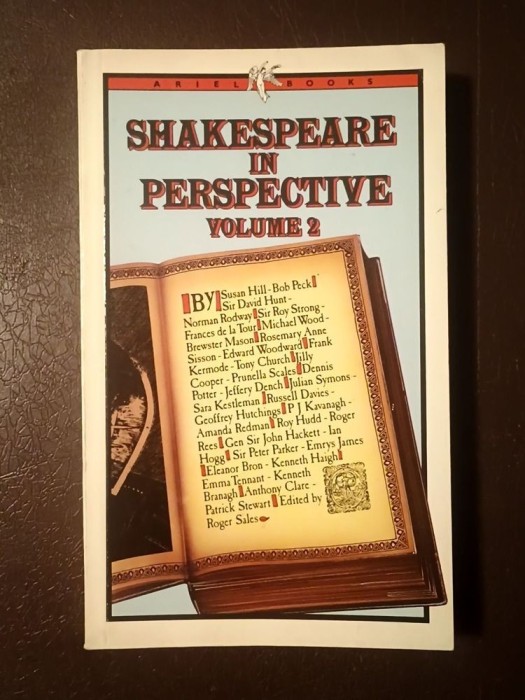 ARIEL BOOKS
SHAKESPEARE
IN
PERSPECTIVE
VOLUME 2
BY Susan Hill - Bob Peck
Sir David Hunt -
Norman Rodway Sir Roy Strong -
Frances de la Tour Michael Wood -
Brewster Mason Rosemary Anne
Sisson - Edward Woodward Frank
Kermode - Tony Church Jilly
Cooper - Prunella Scales Dennis
Potter - Jeffery Dench Julian Symons -
Sara Kestleman Russell Davies -
Geoffrey Hutchings P J Kavanagh -
Amanda Redman Roy Hudd - Roger
Rees Gen Sir John Hackett - Ian
Hogg Sir Peter Parker - Emrys James
Eleanor Bron - Kenneth Haigh
Emma Tennant - Kenneth
Branagh Anthony Clare -
Patrick Stewart Edited by
Roger Sales